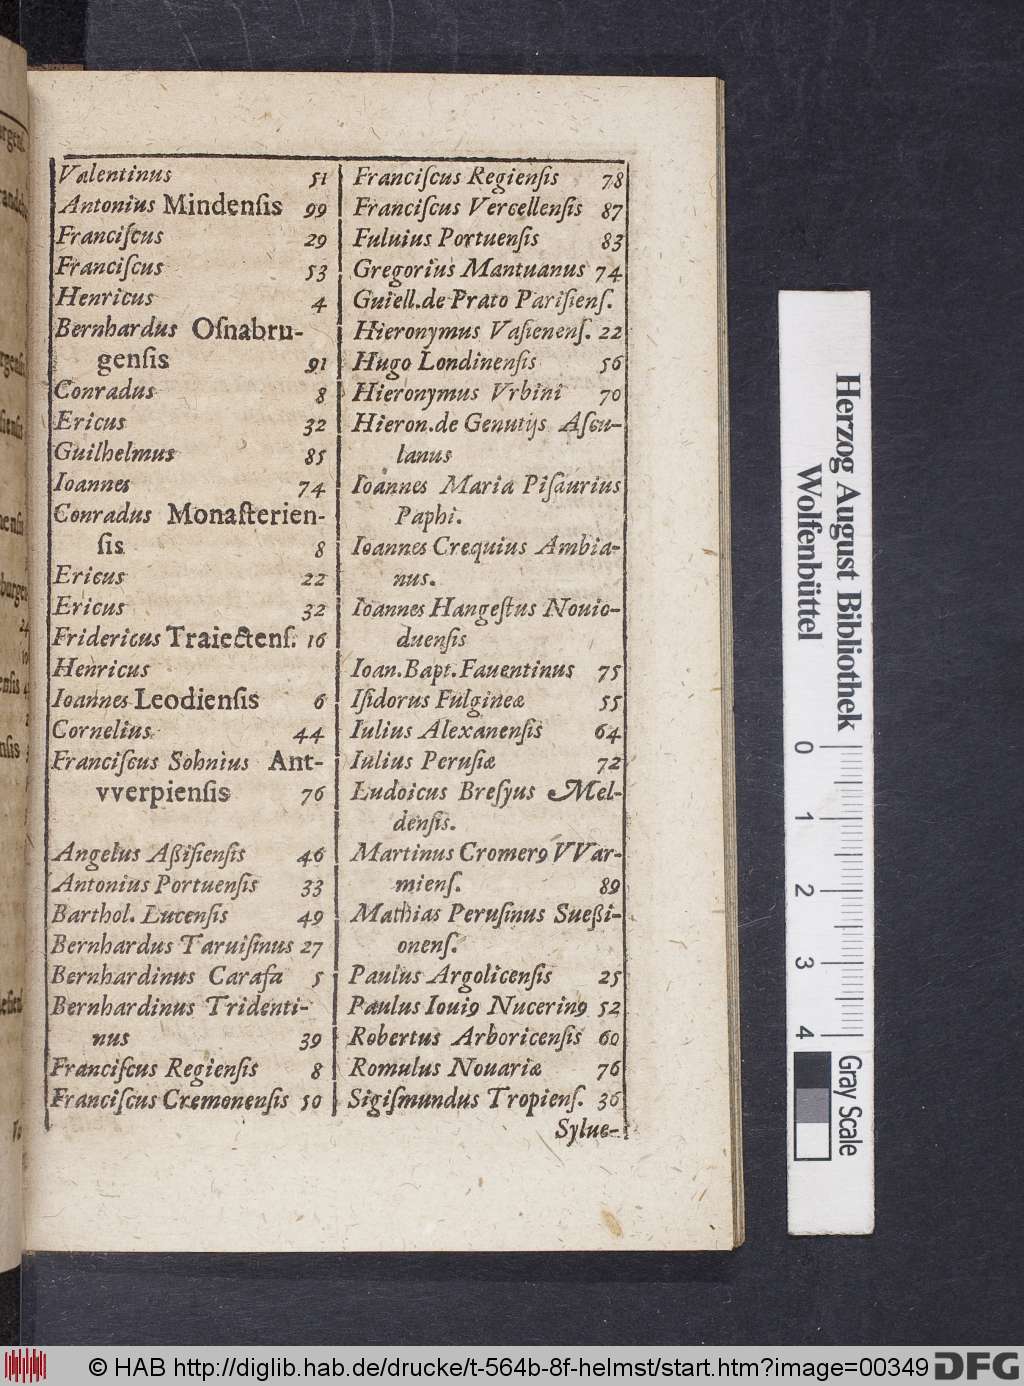 Valentinus 51
Antonius Mindenſis 99
Franciſcus 29
Franciſcus 53
Henricus 4
Bernhardus Oſnabru-
genſis 91
Conradus 8
Ericus 32
Guilhelmus 85
Ioannes 74
Conradus Monaſterien-
ſis 8
Ericus 22
Ericus 32
Fridericus Traiectenſ. 16
Henricus
Ioannes Leodienſis 6
Cornelius 44
Franciſcus Sohnius Ant-
vverpienſis 76
Angelus Aßiſienſis 46
Antonius Portuenſis 33
Barthol. Lucenſis 49
Bernhardus Taruiſinus 27
Bernhardinus Carafa 5
Bernhardinus Tridenti-
nus 39
Franciſcus Regienſis 8
Franciſcus Cremonenſis 50
Franciſcus Regienſis 78
Franciſcus Vercellenſis 87
Fuluius Portuenſis 83
Gregorius Mantuanus 74
Guiell.de Prato Pariſienſ.
Hieronymus Vaſienenſ. 22
Hugo Londinenſis 56
Hieronymus Vrbini 70
Hieron.de Genutijs Aſcu-
lanus
Ioannes Maria Piſaurius
Paphi.
Ioannes Crequius Ambia-
nus.
Ioannes Hangeſtus Nouio-
duenſis
Ioan.Bapt.Fauentinus 75
Iſidorus Fulgineæ 55
Iulius Alexanenſis 64
Iulius Peruſiæ 72
Ludoicus Breſyus Mel-
denſis.
Martinus Cromerꝰ VVar-
mienſ. 89
Mathias Peruſinus Sueßi-
onenſ.
Paulus Argolicenſis 25
Paulus Iouiꝰ Nucerinꝰ 52
Robertus Arboricenſis 60
Romulus Nouariæ 76
Sigiſmundus Tropienſ. 36
Sylue-
Herzog August Bibliothek
Wolfenbüttel
0 1 2 3 4
Gray Scale
© HAB http://diglib.hab.de/drucke/t-564b-8f-helmst/start.htm?image=00349
DFG